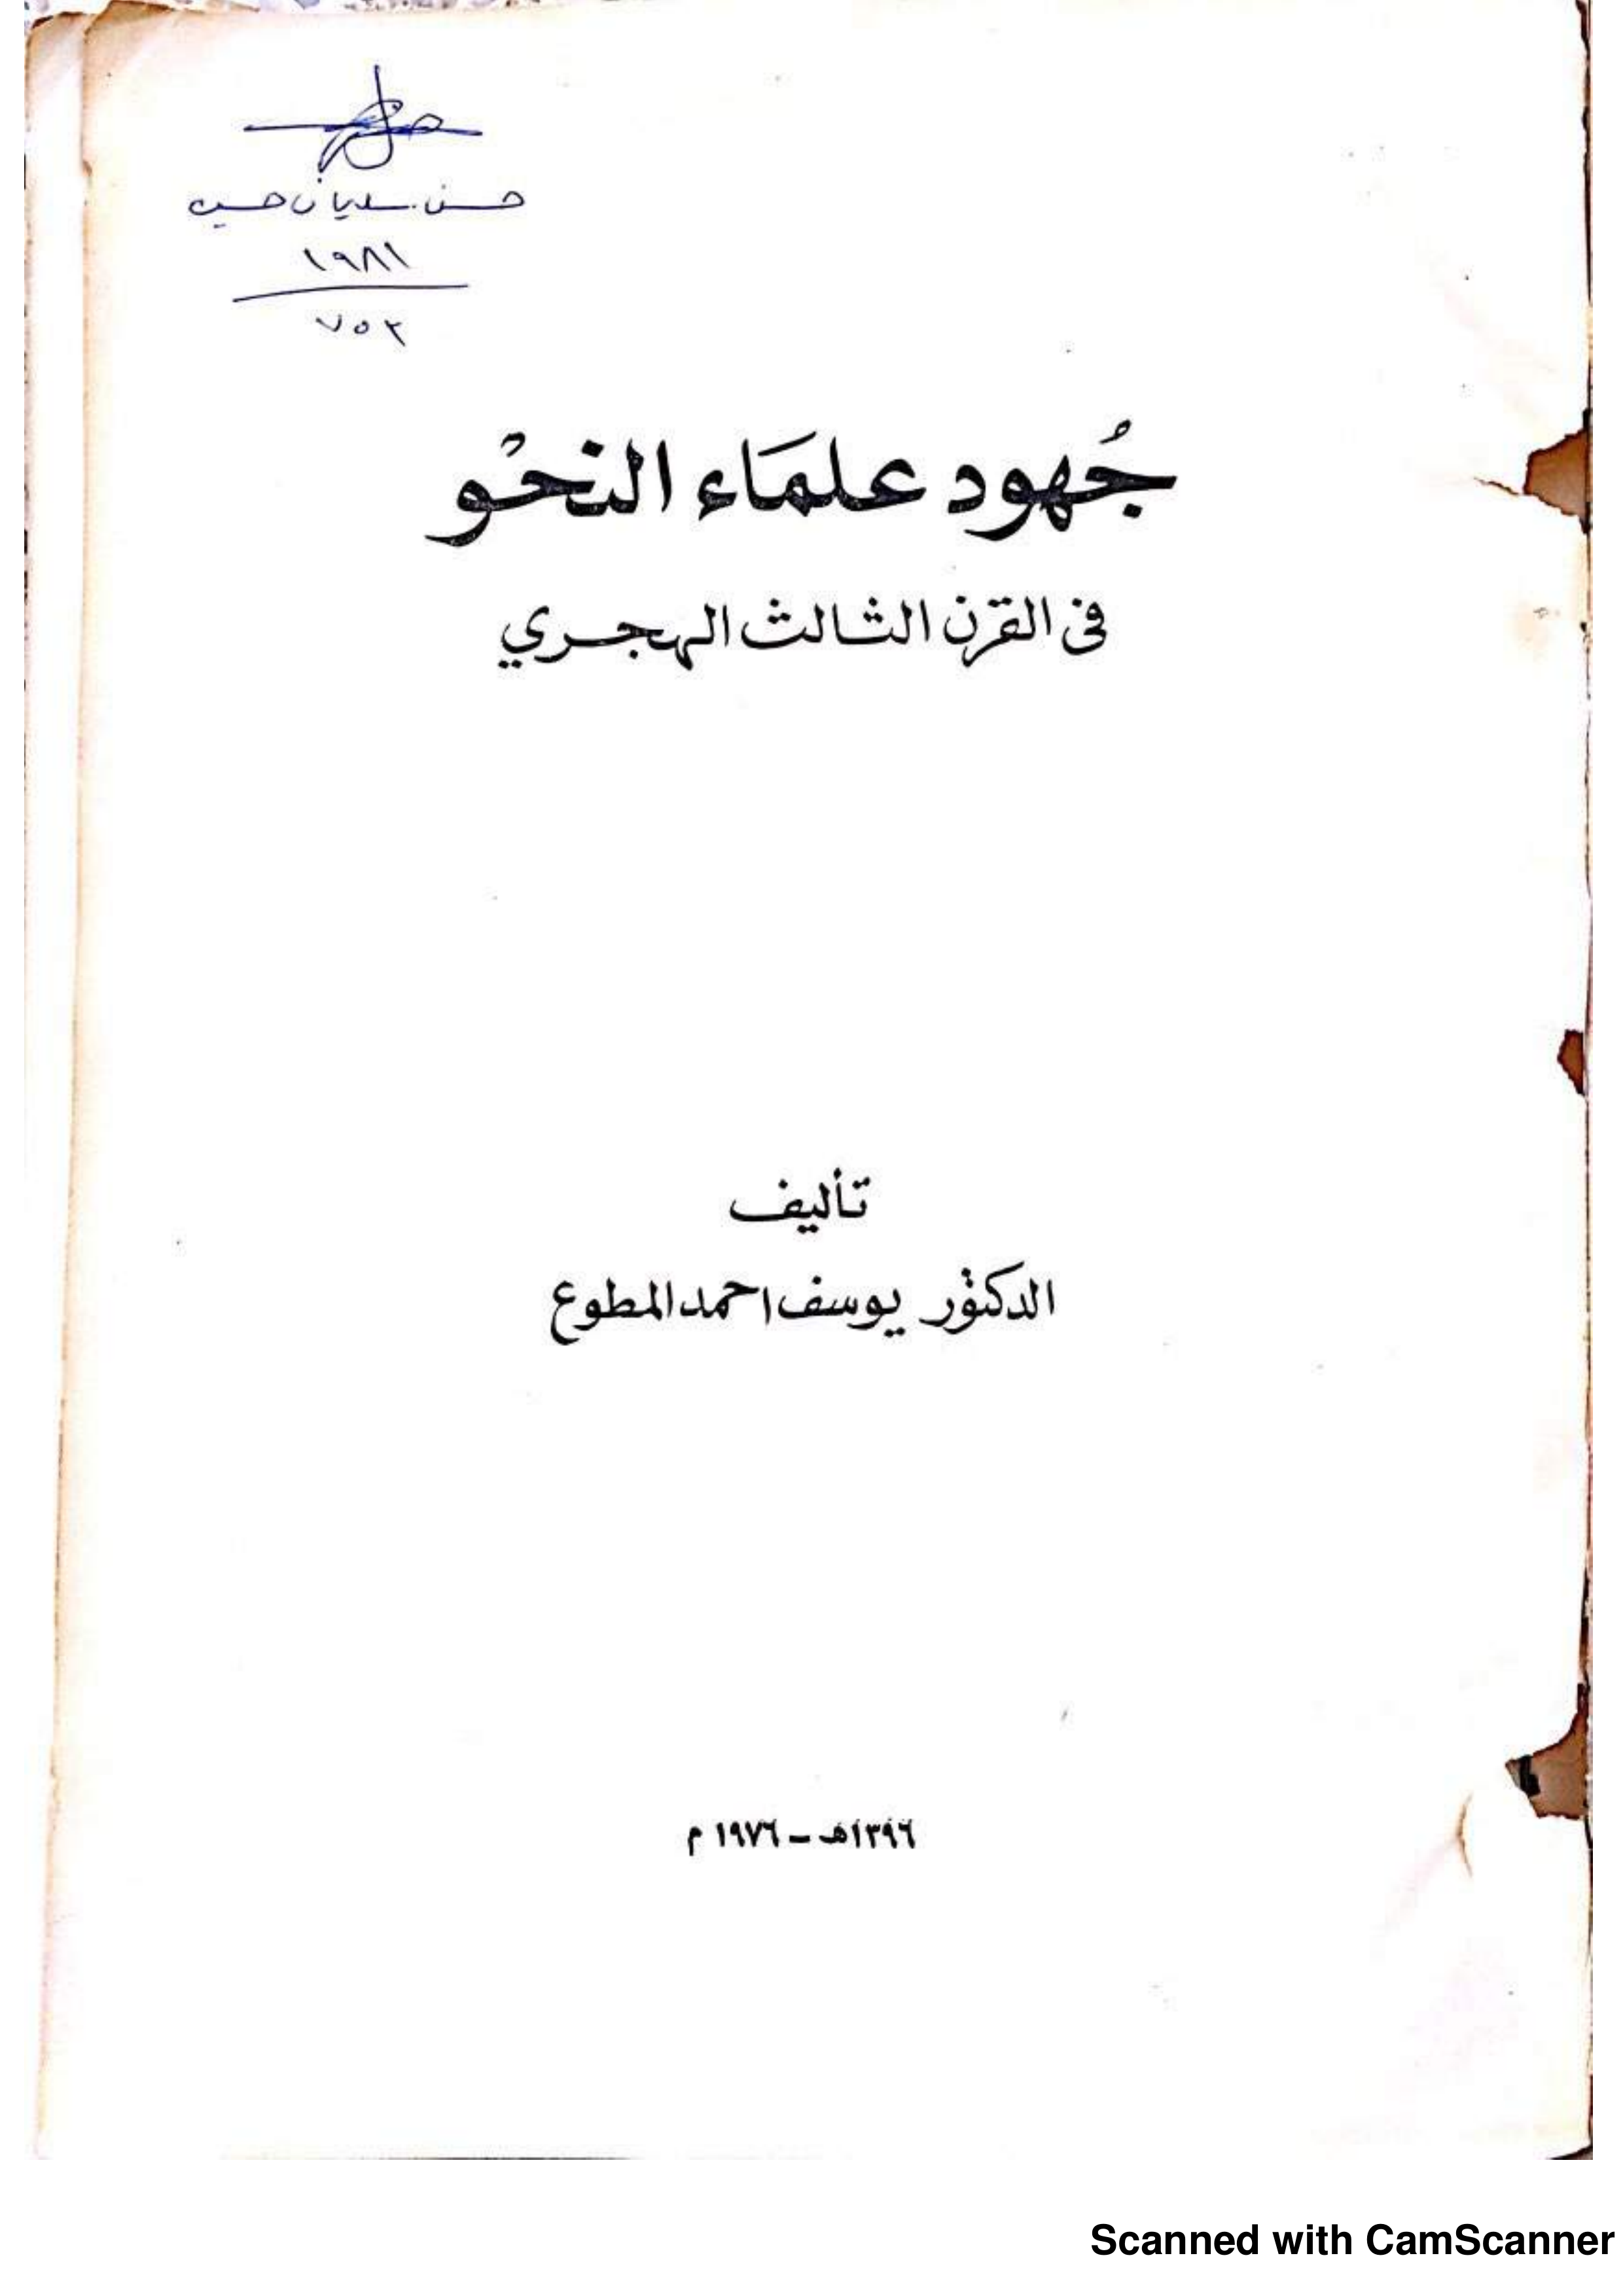 حسن سليمان حسين
١٩٨١
٧٥٢
جُهود علمَاء النحْو
فى القرن الثالث الهجري
تأليف
الدكتور يوسف احمد المطوع
١٣٩٦هـ – ١٩٧٦ م
Scanned with CamScanner